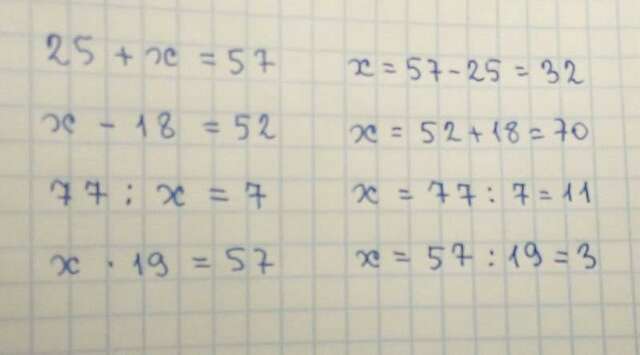 25 + x = 57 x = 57 - 25 = 32
x - 18 = 52 x = 52 + 18 = 70
77 : x = 7 x = 77 : 7 = 11
x · 19 = 57 x = 57 : 19 = 3